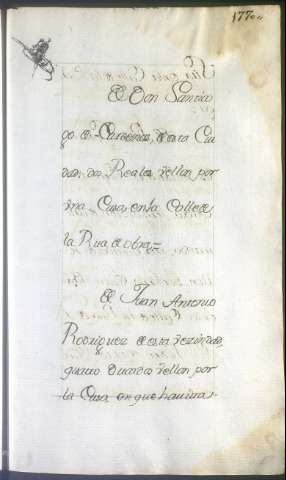 177
De Don Santia
go de Cardenas, de esta Ciu
dad, dos Reales vellon por
una Casa, en la Calle de
la Rua de obra,=
De Juan Antonio
Rodriguez de esta vezindad,
quatro Ducados vellon por
la Casa en que havita.